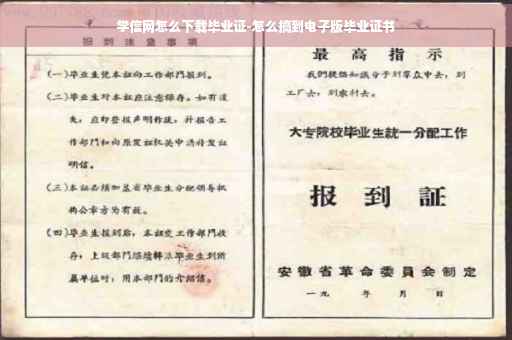 学信网怎么下载毕业证-怎么搞到电子版毕业证书
报到注意事项
(一)毕业生凭本证向工作部门报到。
(二)毕业生对本证应注意保存。如有遗
失,应即登报声明作废,并报告工
作部门和向原发证机关申请补发证
明信。
(三)本证必须加盖省毕业生分配领导机
构公章方为有效。
(四)毕业生报到后,本证交工作部门收
存;上级部门继续转派毕业生到所
属单位时,用本部门的介绍信。
最高指示
我们提倡知识分子到群众中去,到
工厂去,到农村去。
大专院校毕业生统一分配工作
报到証
安徽省革命委員会制定
一九 年 月 日